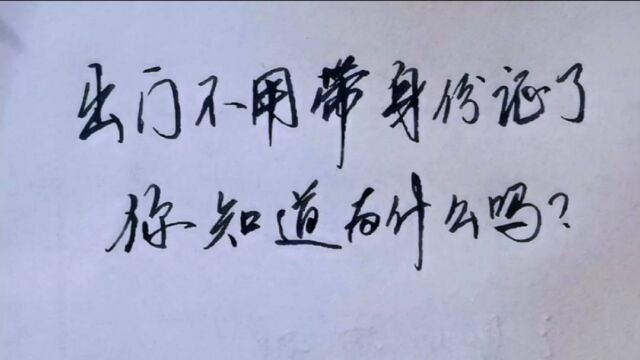 出门不用带身份证了
你知道为什么吗?